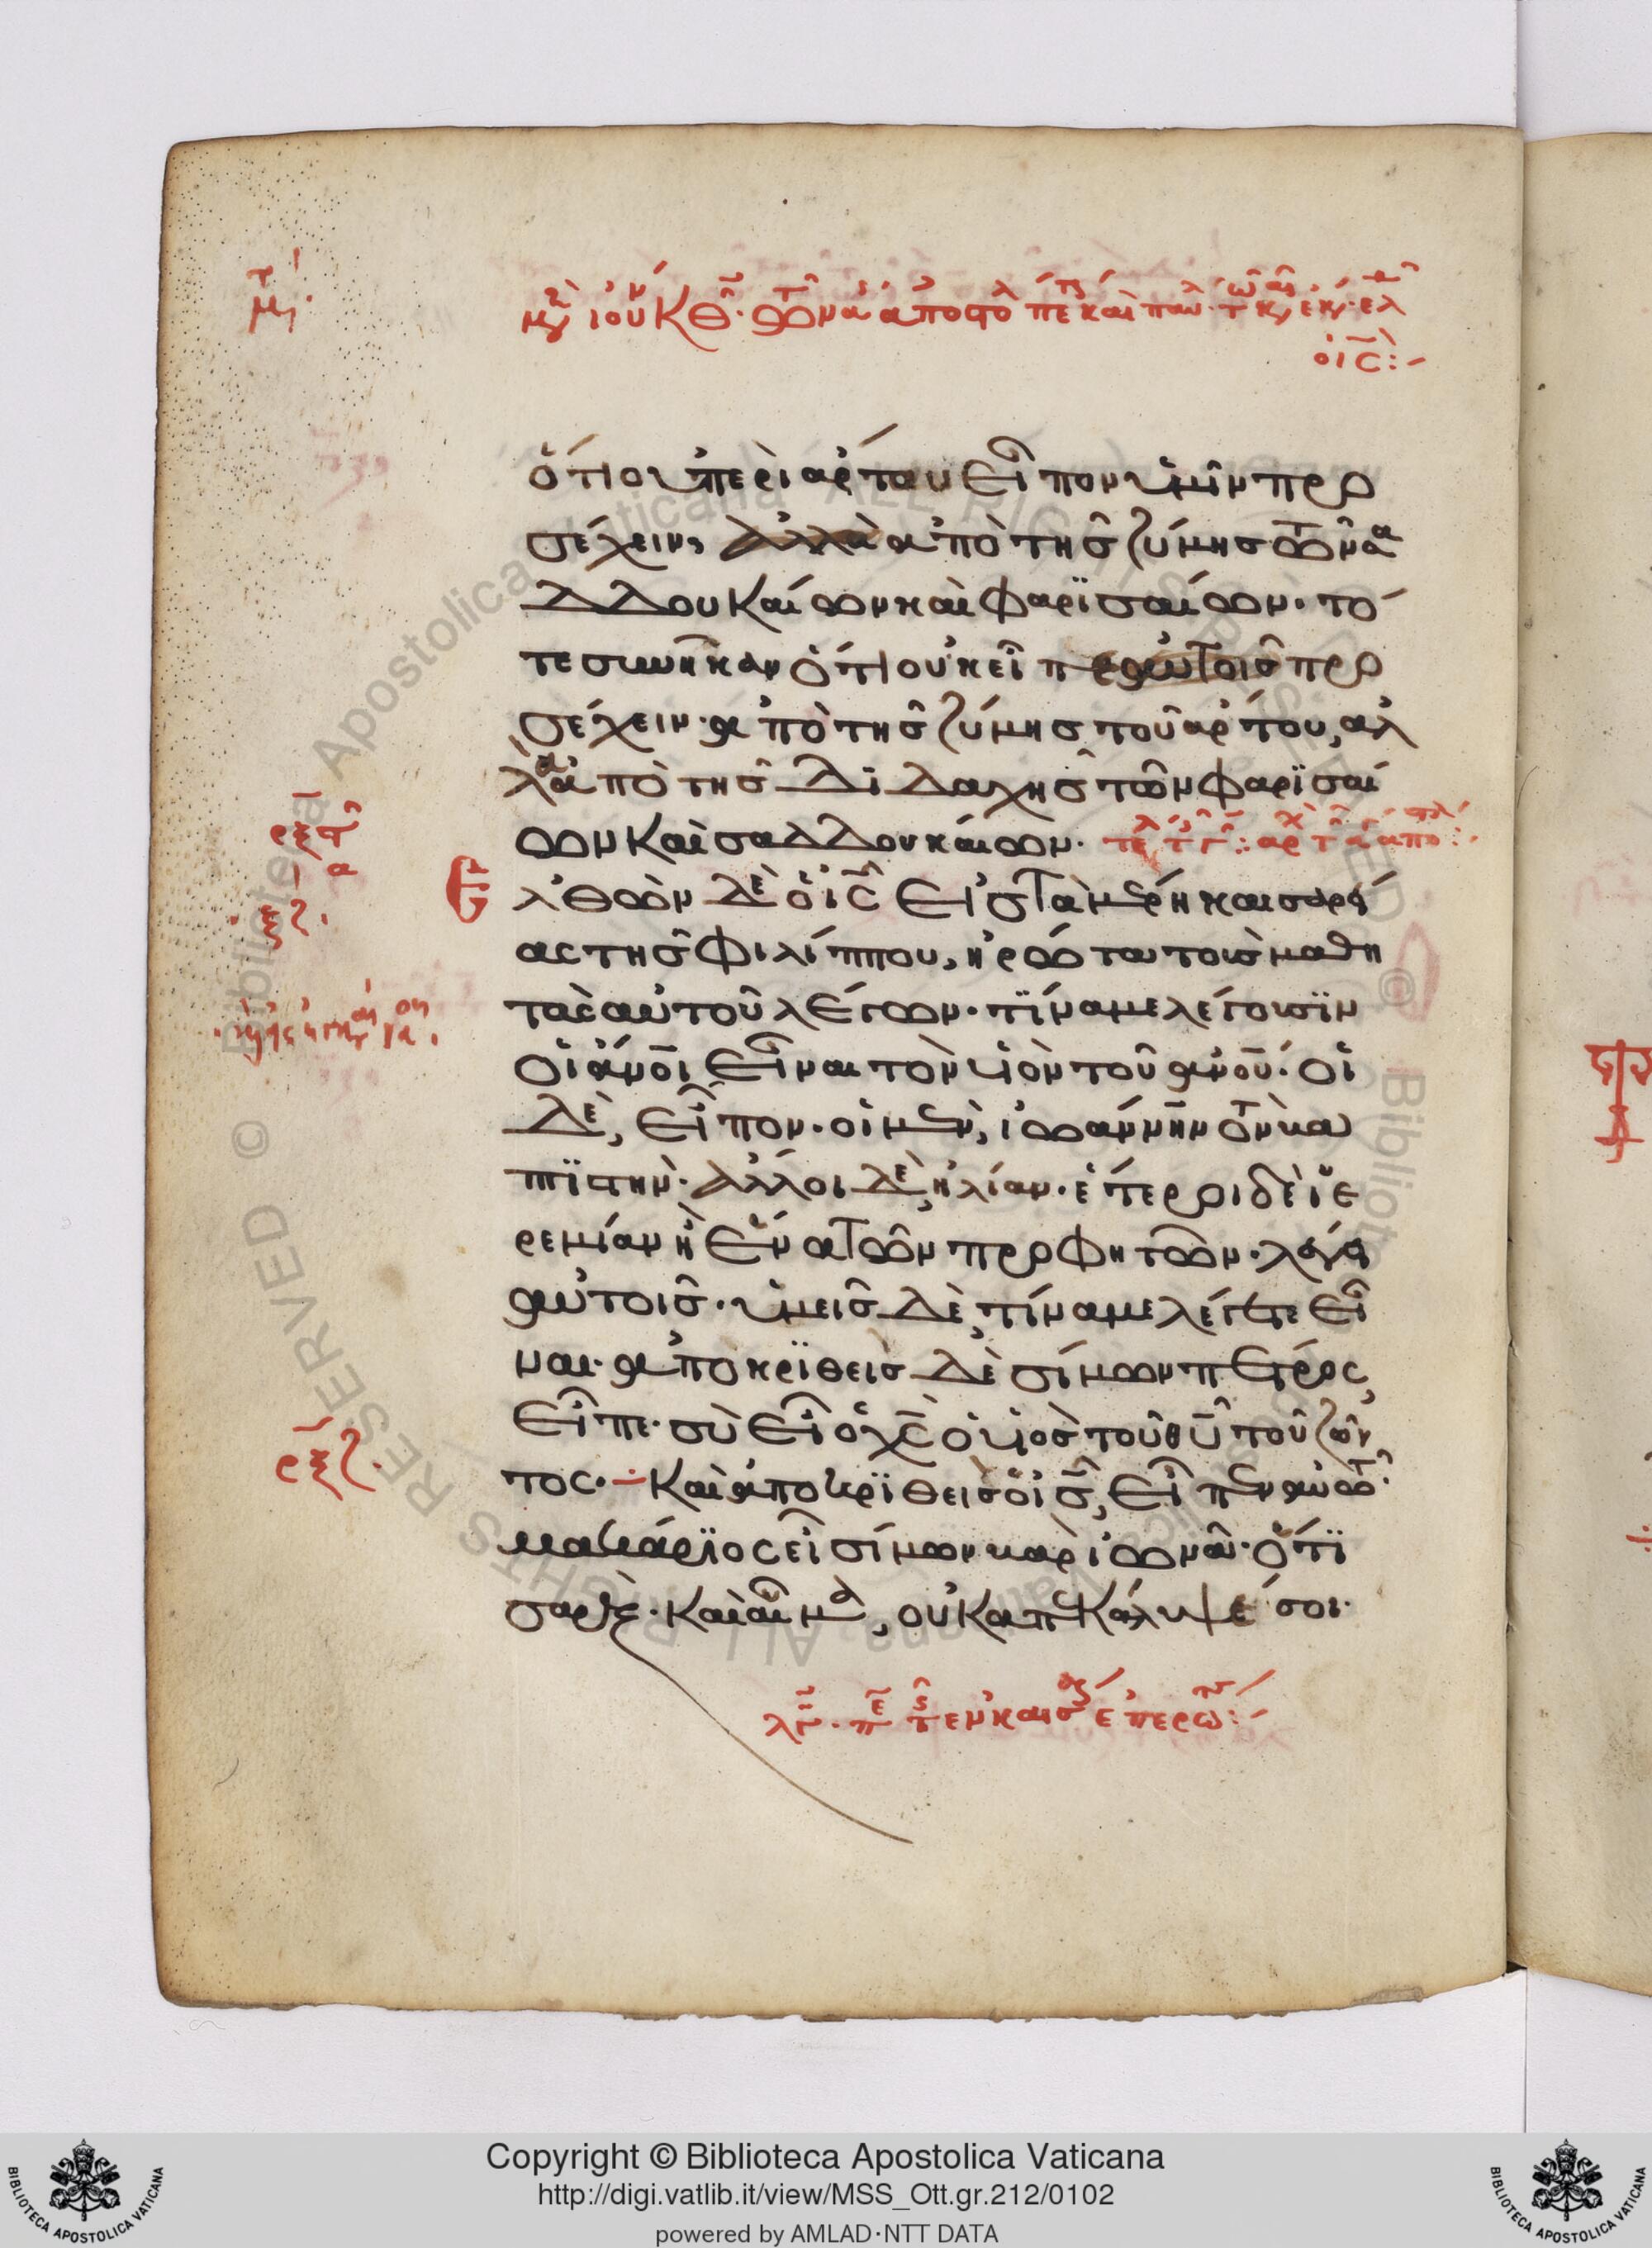 ὅτι οὐ περὶ ἄρτου εἶπον ὑμῖν προ
σέχειν, ἀλλὰ ἀπὸ τῆς ζύμης τῶν σα
δδουκαίων καὶ φαρϊσαίων· τό
τε συνῆκαν ὅτι οὐκ εἶπεν αὐτοῖς προ
σέχειν ἀπὸ τῆς ζύμης τοῦ ἄρτου, ἀλ
λὰ ἀπὸ τῆς διδαχῆς τῶν φαρϊσαί
ων καὶ σαδδουκαίων·
λθὼν δὲ ὁ ις εἰς τὰ μέρη καισαρεί
ας τῆς φιλίππου, ἠρώτα τοὺς μαθη
τὰς αὐτοῦ λέγων· τίνα με λέγουσϊν
οἱ ἄνοι εἶναι τὸν υἱὸν τοῦ ἀνου· οἱ
δὲ, εἶπον· οἱ μὲν, ἰωάννην τὸν βα
πτϊστήν· ἄλλοι δὲ, ἠλίαν· ἕτεροι δὲ ἱε
ρεμίαν ἢ ἕνα τῶν προφητῶν· λέγει
αὐτοῖς· ὑμεῖς δὲ, τίνα με λέγετε εἶ
ναι· ἀποκρϊθεὶς δὲ σίμων πέτρος,
εἶπε· σὺ εἶ ὁ χς ὁ υἱὸς τοῦ θυ τοῦ ζῶν
τος· ÷ καὶ ἀποκρϊθεὶς ὁ ις, εἶπεν αὐτῶ·
μακάρϊος εἶ σίμων βαρ ἰωνᾶ· ὅτϊ
σὰρξ καὶ αἷμα, οὐκ ἀπεκάλυψέ σοι·
Copyright © Biblioteca Apostolica Vaticana
http://digi.vatlib.it/view/MSS_Ott.gr.212/0102
powered by AMLAD·NTT DATA
BIBLIOTECA APOSTOLICA VATICANA
BIBLIOTECA APOSTOLICA VATICANA